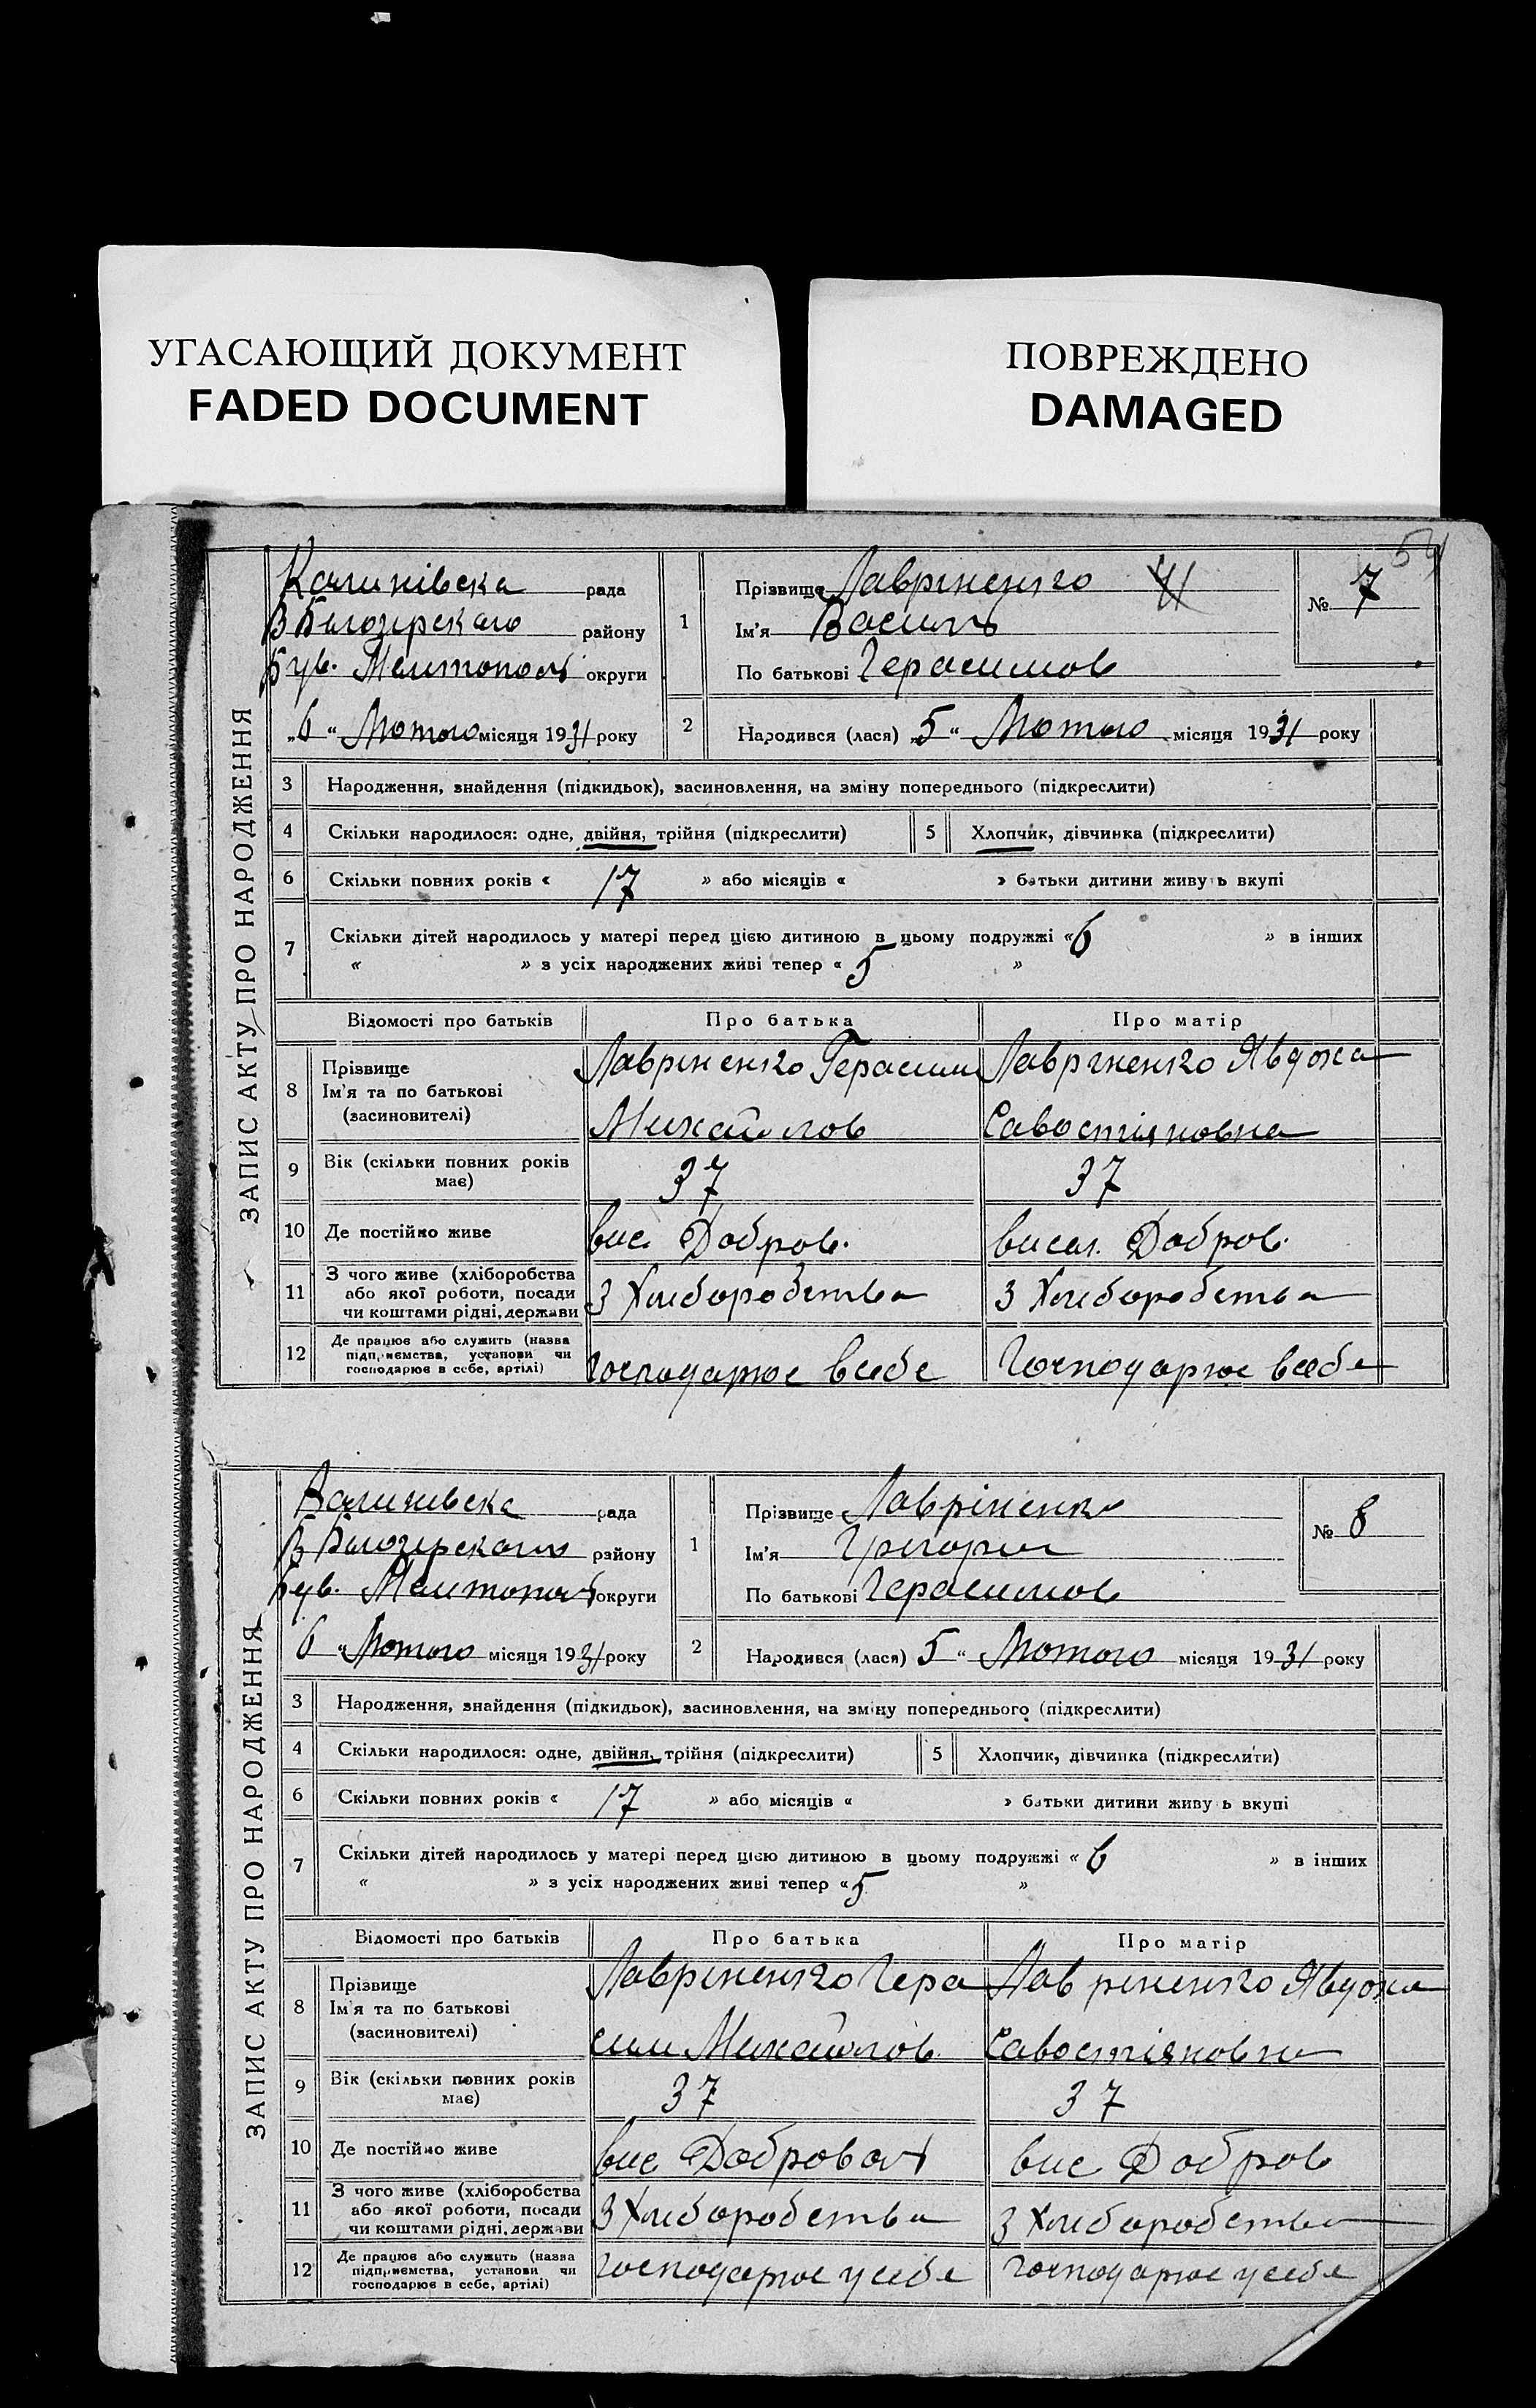 УГАСАЮЩИЙ ДОКУМЕНТ
FADED DOCUMENT
ПОВРЕЖДЕНО
DAMAGED
54
ЗАПИС АКТУ ПРО НАРОДЖЕННЯ
Калинівска рада
В Білозерского району
був. Мелитополь округи
„6“ Лютого місяця 1931 року
1 Прізвище Лавріненко
Ім'я Василь
По батькові Герасимов
№ 7
2 Народився (лася) „5“ Лютого місяця 1931 року
3 Народження, знайдення (підкидьок), засиновлення, на зміну попереднього (підкреслити)
4 Скільки народилося: одне, двійня, трійня (підкреслити) 5 Хлопчик, дівчинка (підкреслити)
6 Скільки повних років « 17 » або місяців « » батьки дитини живуть вкупі
7 Скільки дітей народилось у матері перед цією дитиною в цьому подружжі « 6 » в інших
« » з усіх народжених живі тепер « 5 »
Відомості про батьків Про батька Про матір
8 Прізвище
Ім'я та по батькові
(засиновителі)
Лавріненко Герасим
Михайлов
Лавріненко Явдоха
Савостіяновна
9 Вік (скільки повних років
має)
37 37
10 Де постійно живе вис. Добров. висел. Добров.
11 З чого живе (хліборобства
або якої роботи, посади
чи коштами рідні, держави
З Хліборобства З Хліборобства
12 Де працює або служить (назва
підприємства, установи чи
господарює в себе, артілі)
Господарює всебе Господарює всебе
ЗАПИС АКТУ ПРО НАРОДЖЕННЯ
Калинівска рада
В Білозерского району
був. Мелитополь округи
6 “ Лютого місяця 1931 року
1 Прізвище Лавріненко
Ім'я Григорій
По батькові Герасимов
№ 8
2 Народився (лася) 5 “ Лютого місяця 1931 року
3 Народження, знайдення (підкидьок), засиновлення, на зміну попереднього (підкреслити)
4 Скільки народилося: одне, двійня, трійня (підкреслити) 5 Хлопчик, дівчинка (підкреслити)
6 Скільки повних років « 17 » або місяців « » батьки дитини живуть вкупі
7 Скільки дітей народилось у матері перед цією дитиною в цьому подружжі « 6 » в інших
« » з усіх народжених живі тепер « 5 »
Відомості про батьків Про батька Про матір
8 Прізвище
Ім'я та по батькові
(засиновителі)
Лавріненко Гера
сим Михайлов
Лавріненко Явдоха
Савостіяновна
9 Вік (скільки повних років
має)
37 37
10 Де постійно живе вис Добровол вис Добров
11 З чого живе (хліборобства
або якої роботи, посади
чи коштами рідні, держави
З Хліборобства З Хліборобства
12 Де працює або служить (назва
підприємства, установи чи
господарює в себе, артілі)
господарює усебе господарює усебе